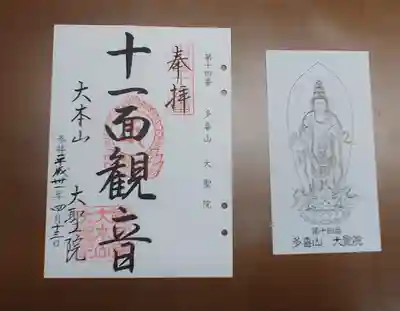 第十四番 多喜山 大聖院
奉拝
十一面観音
大本山 大聖院
平成卅一年四月十三日
第十四番
多喜山 大聖院